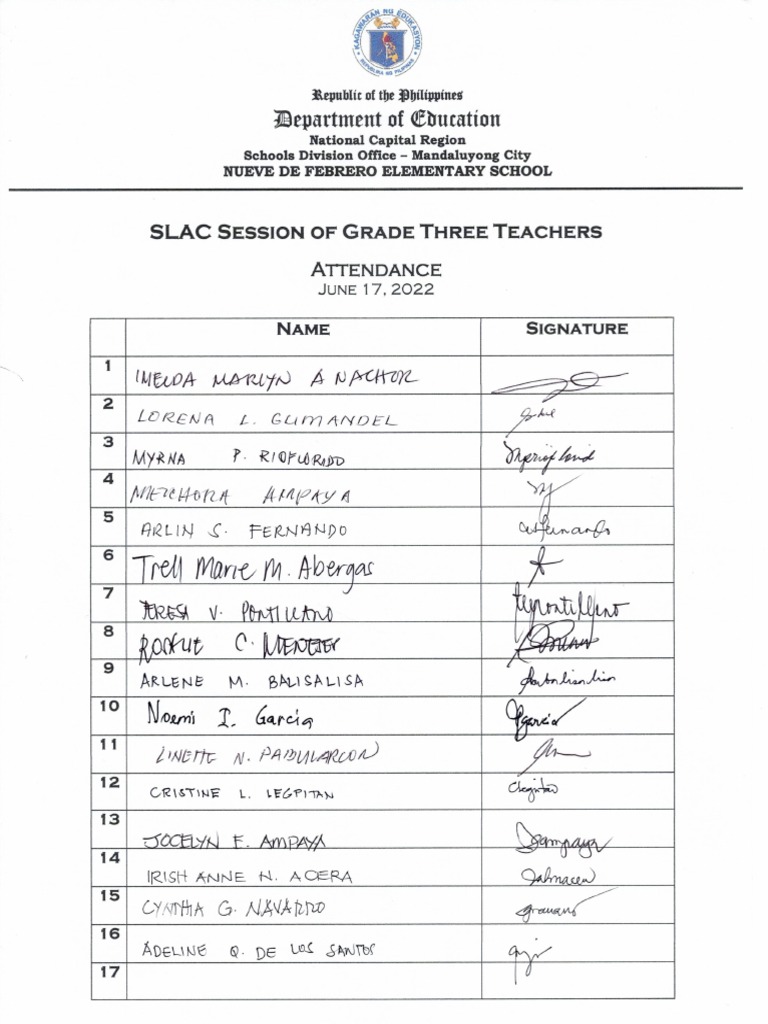 KAGAWARAN NG EDUKASYON
REPUBLIKA NG PILIPINAS
Republic of the Philippines
Department of Education
National Capital Region
Schools Division Office – Mandaluyong City
NUEVE DE FEBRERO ELEMENTARY SCHOOL
SLAC SESSION OF GRADE THREE TEACHERS
ATTENDANCE
JUNE 17, 2022
NAME SIGNATURE
1 IMELDA MARLYN A NACHOR
2 LORENA L. GUMANDEL
3 MYRNA P. RIOFLORIDO
4 MELCHORA AMPAYA
5 ARLIN S. FERNANDO
6 Trell Marie M. Abergas
7 TERESA V.
8 C.
9 ARLENE M. BALISALISA
10 Noemi I. Garcia garcia
11 LINETTE N.
12 CRISTINE L. LEGPITAN
13 JOCELYN E. AMPAYA
14 IRISH ANNE N. ACERA
15 CYNTHIA G. NAVARRO
16 ADELINE Q. DE LOS SANTOS
17